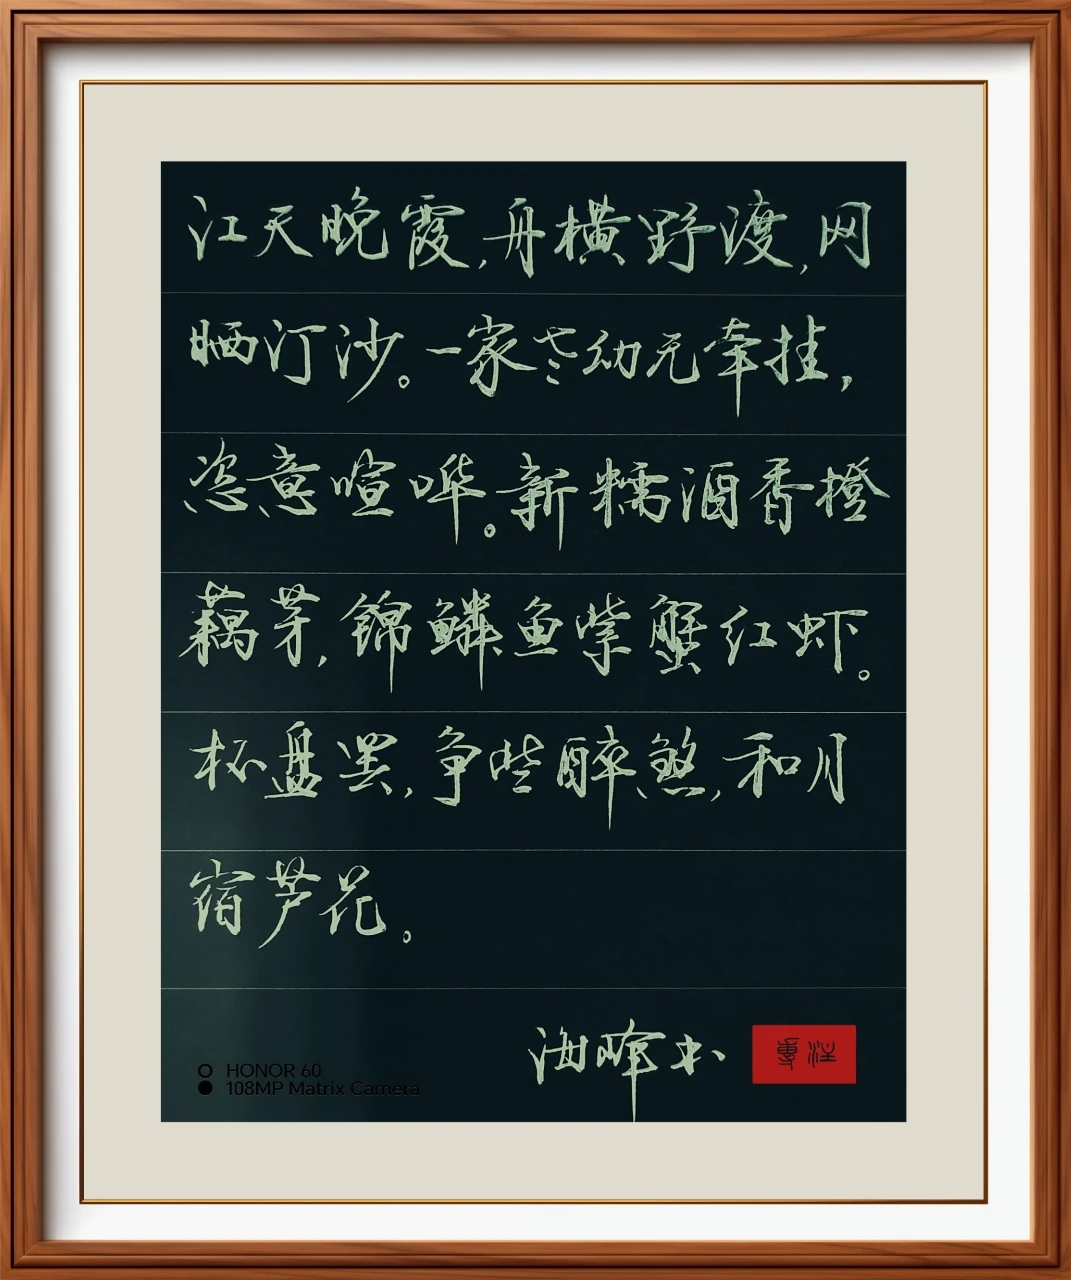 江天晚霞,舟横野渡,网
晒汀沙。一家老幼无牵挂,
恣意喧哗。新糯酒香橙
藕芽,锦鳞鱼紫蟹红虾。
杯盘罢,争些醉煞,和月
宿芦花。
海峰书
专注
HONOR 60
108MP Matrix Camera